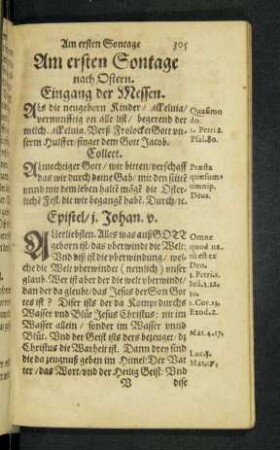 Am ersten Sontage 305
Am ersten Sontage
nach Ostern.
Eingang der Messen.
Als die neugeborn Kinder / Alleluia /
vernunfftig on alle list / begerend der
milch. Alleluia. Verß Frolocket Gott vn-
serm Hulffer / singet dem Gott Jacob.
Collect.
ALmechtiger Gott / wir bitten / verschaff
das wir durch deine Gab / mit den sitten
vnnd mit dem leben haltē mögē die Öster-
lichē Fest. die wir begangē habē. Durch / ꝛc.
Epistel / j. Johan. v.
ALlerliebsten. Alles was auß GOTT
geborn ist / das vberwindt die Welt:
Vnd diß ist die vberwindung / wel-
che die Welt vberwindet (nemlich) vnser
glaub. Wer ist aber der die welt vberwindt /
dan der da gleubt / das Jesus der Son Got
tes ist? Diser ists der da Kompt durchs
Wasser vnd Blut Jesus Christus: nit im
Wasser allein / sonder im Wasser vnnd
Blut. Vnd der Geist ists ders bezeuget / dz
Christus die Warheit ist. Dann drey sind
die da zeugnuß geben im Himel: Der Vat
ter / das Wort / vnd der Heilig Geist. Vnd
V dise
Quasimo
do.
1. Petri 2.
Psal. 80.
Præsta
quæsumus
omnip.
Deus.
Omne
quod na-
tū est ex
Deo.
1. Cor. 15.
Exod. 2.